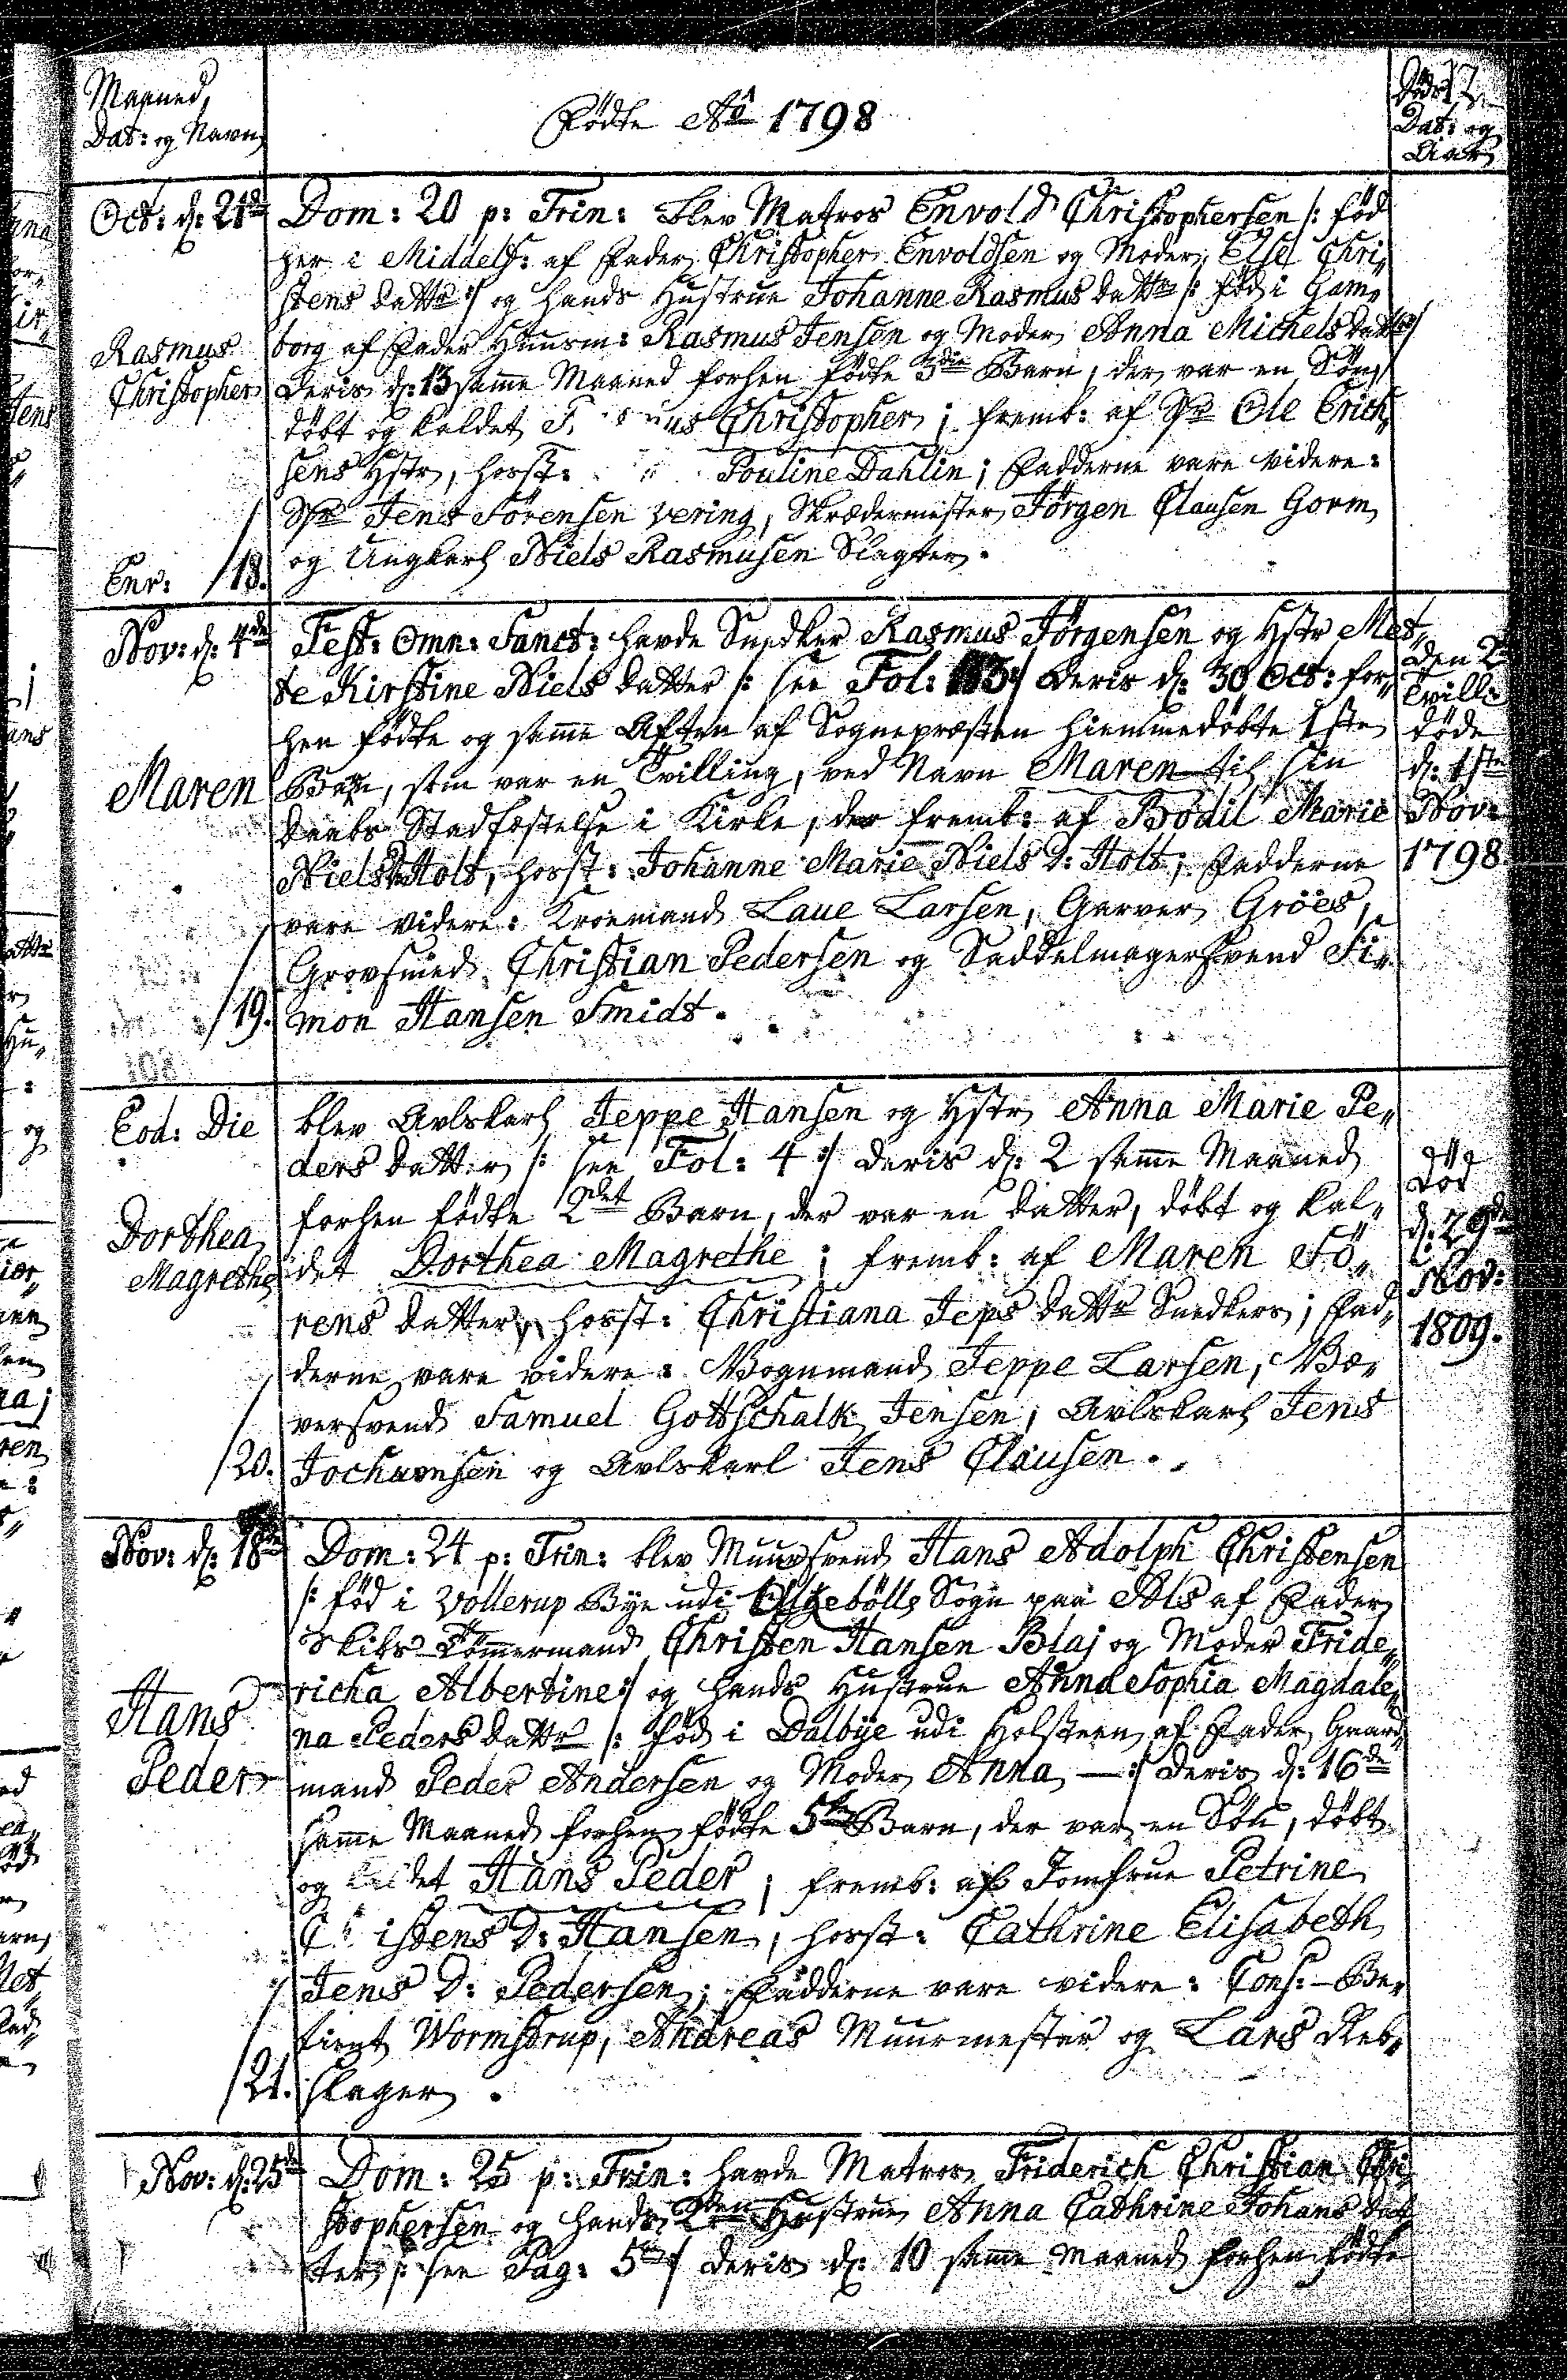 Maaned,
Dat: og Navn
Fødte Aō 1798
Dat: og
Oct: d: 21de
Dom: 20 p: Trin: blev Matros Envold Christophersen /: fød
her i Middelf: af Fader Christopher Envoldsen og Moder Else Chri„
stens Dattr :/ og hands Hustrue Johanne Rasmus Dattr /: fød i Gam„
borg af Fader Huusm: Rasmus Jensen og Moder Anna Michels Dattr :/
Rasmus
Christopher
Deris d: 13 samme Maaned forhen fødte 3die Barn, der var en Søn,
døbt og kaldet Christopher; fremb: af Sr Ole Erich„
sens Hstr, hosst: Pouline Dahlin; Fadderne vare videre:
Sr Jens Sörensen Vering, Skrædermester Jörgen Clausen Gorm
og Ungkarl Niels Rasmusen Slagter.
Enr: /18.
Nov: d: 4de
Fest: Omn: Sanct: havde Snedker Rasmus Jörgensen og Hstr Met„
te Kirstine Niels Datter /: see Fol: :/ Deris d: 30 Oct: for„
hen fødte og samme Aften af Sognepræsten hiemmedøbte 1ste
Barn, som var en Tvilling, ved Navn Maren til sin
Maren
Daabs Stadfæstelse i Kirke, der fremb: af Bodil Marie
Niels D: Holt, hosst: Johanne Marie Niels D: Holt; Fadderne
vare videre: Kroemand Laue Larsen, Garver Gröes,
Grovsmed Christian Pedersen og Saddelmagersvend Si„
mon Hansen Smidt.
/19.
Den 2
Tvill:
døde
d: 1ste
Nov:
1798
Eod: Die
blev Avlskarl Jeppe Hansen og Hstr Anna Marie Pe„
ders Datter /: see Fol: 4 :/ Deris d: 2 samme Maaned
forhen fødte 2det Barn, der var en Datter, døbt og kal„
det Dorthea Magrethe; fremb: af Maren Sö„
Dorthea
Magrethe
rens Datter, hosst: Christiana Jeps Dattr Snedkers; Fad„
derne vare videre: Vognmand Jeppe Larsen, Væ„
versvend Samuel Gottschalk Jensen, Avlskarl Jens
Jochumsen og Avlskarl Jens Clausen.
/20.
Død
d: 29de
Nov:
1809.
Nov: d: 18de
Dom: 24 p: Trin: blev Muursvend Hans Adolph Christensen
/: fød i Vollerup Bye udi Sogn paa Als af Fader
Skibs-Tømmermand Christen Hansen Blaj og Moder Fride„
richa Albertine :/ og hands Hustrue Anna Sophia Magdale„
na Peders Dattr /: fød i Dalbye udi Holsteen af Fader Gaard„
Hans
Peder
mand Peder Andersen og Moder Anna — :/ Deris d: 16de
samme Maaned forhen fødte 5te Barn, der var en Søn, døbt
og kaldet Hans Peder; fremb: af Jomfrue Petrine
Christens D: Hansen, hosst: Cathrine Elisabeth
Jens D: Pedersen; Fadderne vare videre: Cons:-Be„
tient Wormstrup, Andreas Muurmester og Lars Reb„
slager.
/21.
Nov: d: 25de
Dom: 25 p: Trin: havde Matros Friderich Christian Chri„
stophersen og hands 2den Hustrue Anna Cathrine Johans Dat„
ter /: see Pag: 5 :/ Deris d: 10 samme Maaned forhen fødte